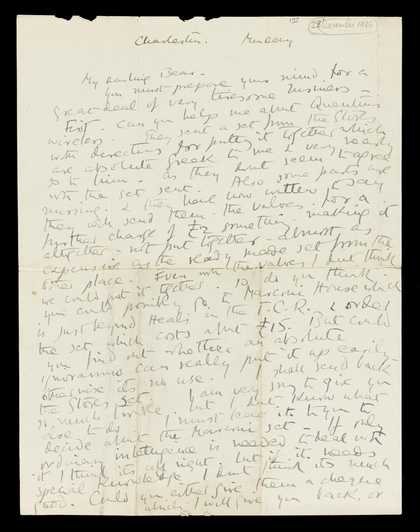 28 December 1925
Charleston. Monday
My darling Bear.
You must prepare your mind for a
great deal of very tiresome business —
First. Can you help me about Quentin's
wireless. They sent a set from the Stores
with directions for putting it together which
are absolute Greek to me & very nearly
so to him as they don't seem to agree
with the set sent. Also some parts are
missing & they have now written to say
they will send them. the valves. for a
further charge of £2 something making it
altogether – not put together – almost as
expensive as the ready made set from the
other place. Even with the valves I don't think
we could put it together. so do you think
you could possibly go to Marconi House which
is just beyond Heals in the T.C.R. & order
the set which costs about £15. But could
you find out whether an absolute
ignoramus can really put it up easily –
otherwise its no use. I shall send back
the Stores set. I am very sorry to give you
so much trouble but I don't know what
else to do. I must leave it to you to
decide about the Marconi set – If only
ordinary intelligence is needed to deal with
it I think its all right – but if it needs
special knowledge I don't think its much
good. Could you either give them a cheque
which I will give you back, or